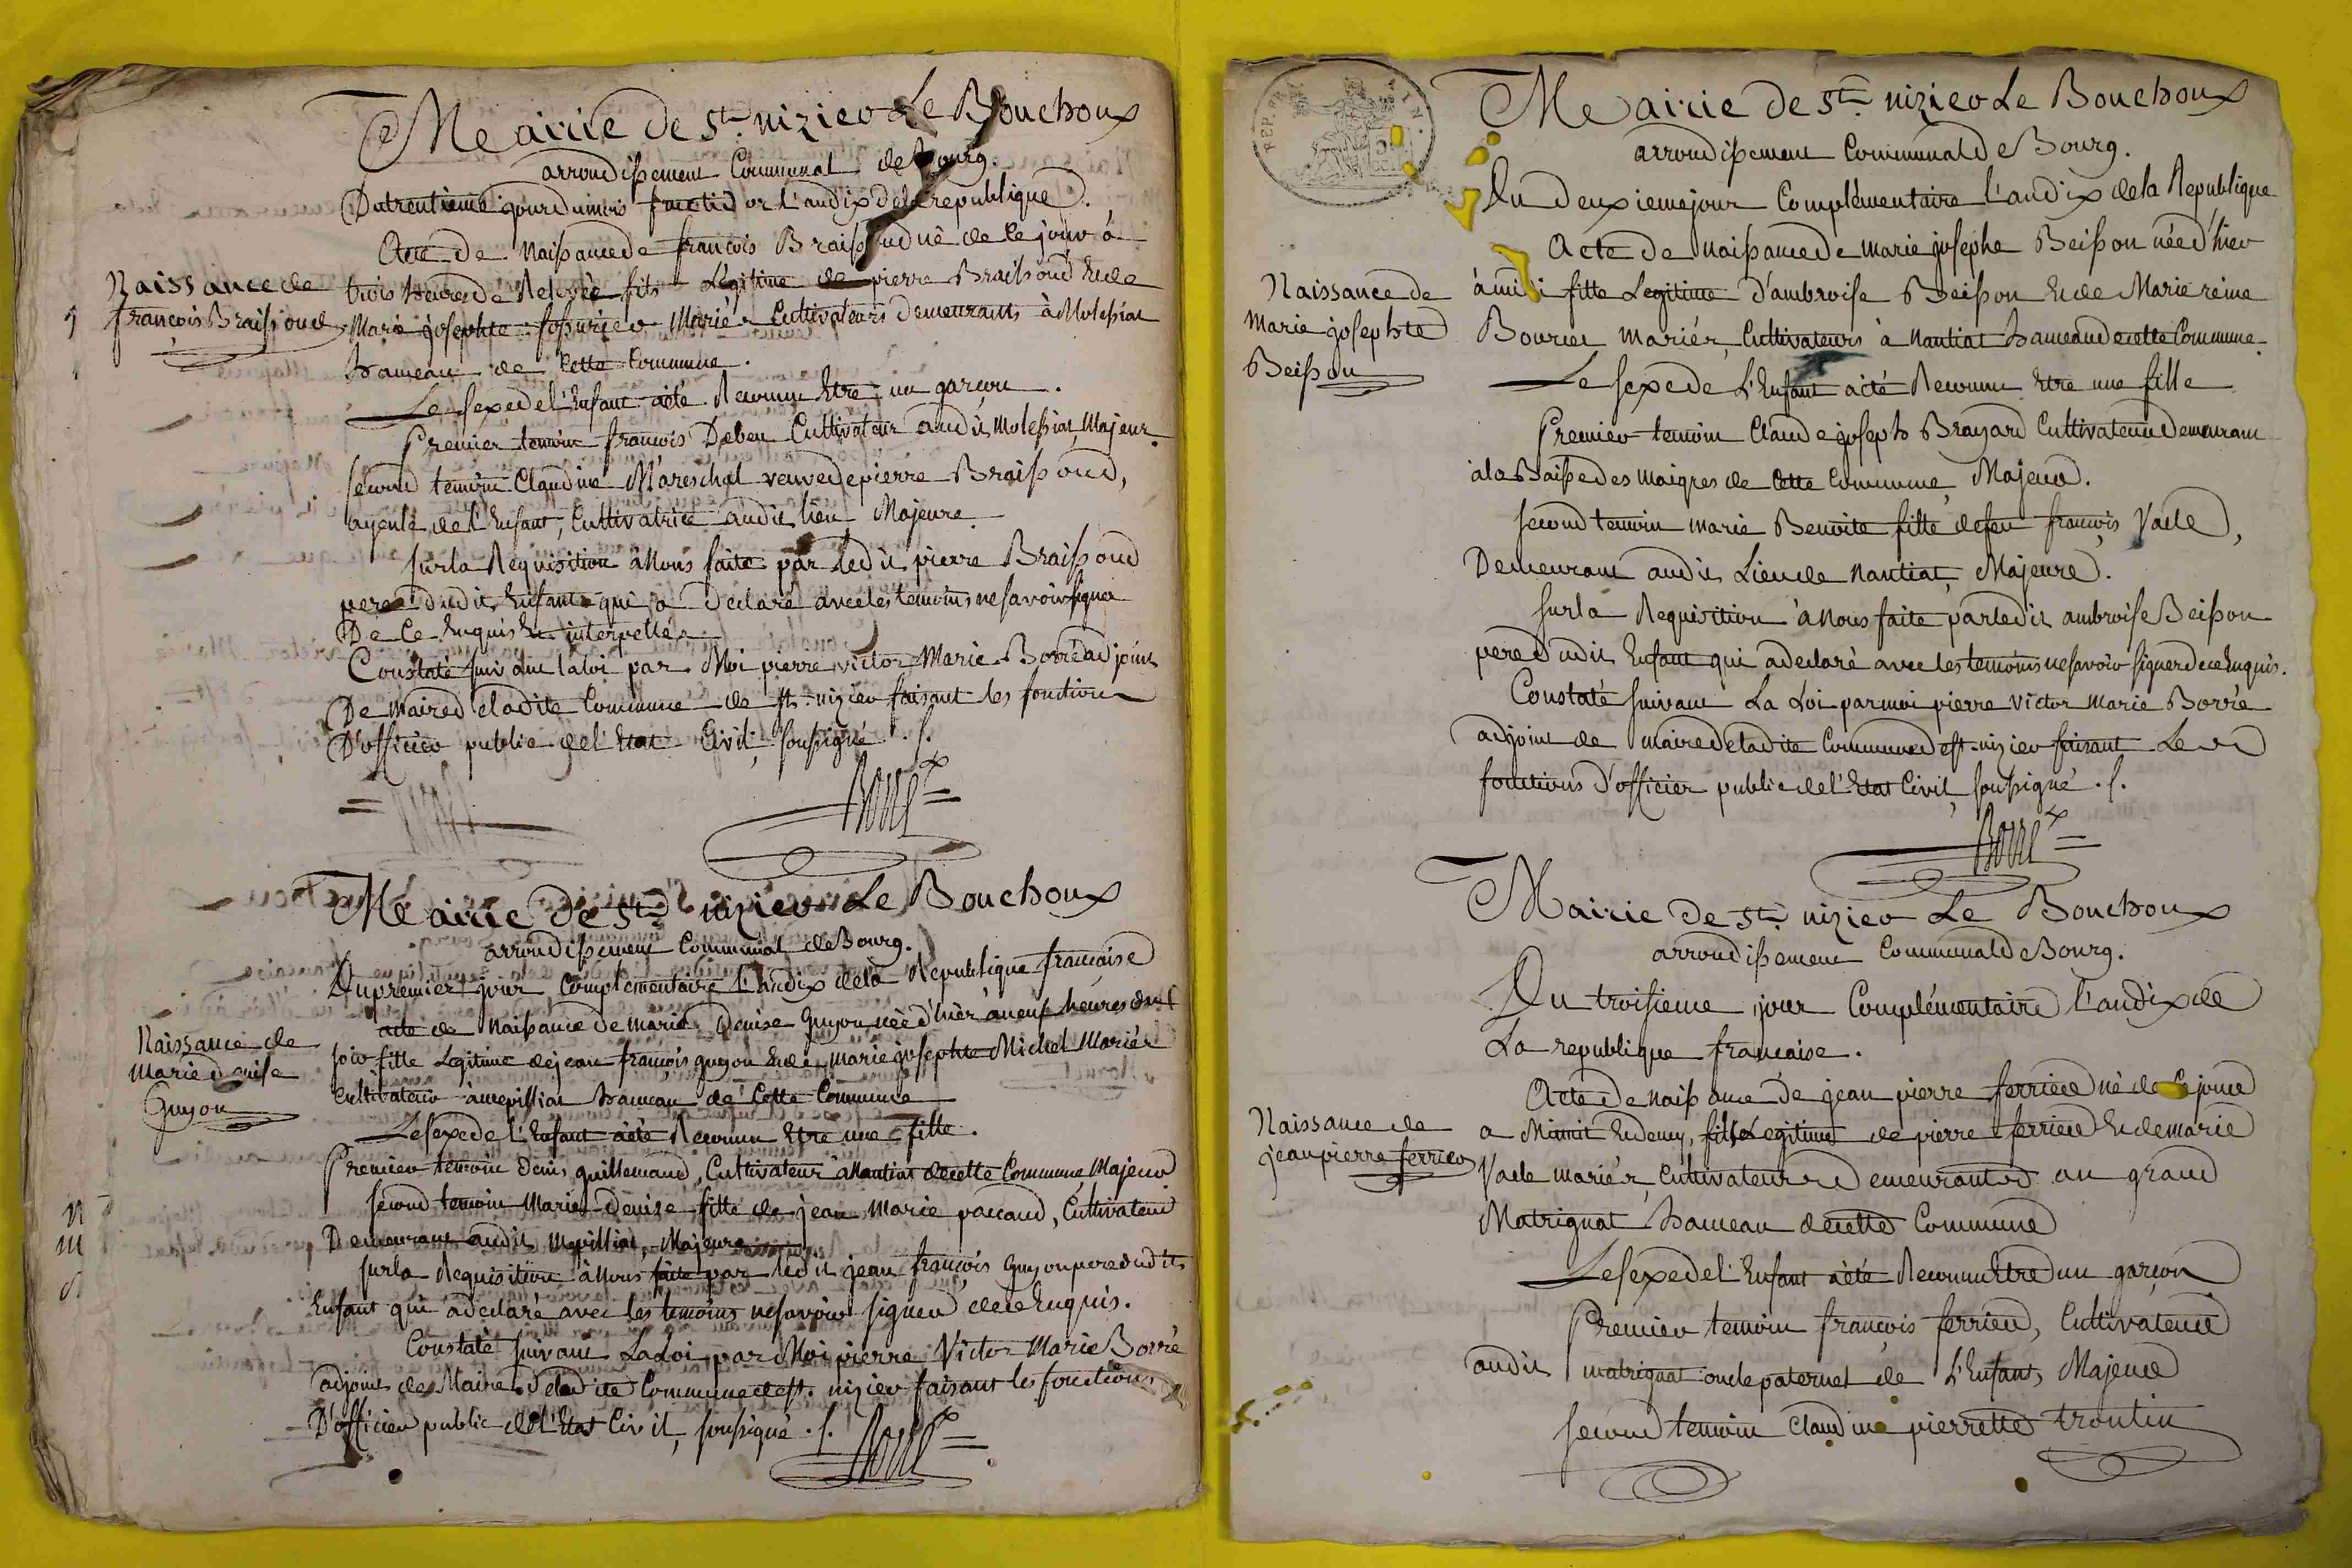 Mairie de St. nizier Le Bouchoux
arrondissement Communal de Bourg.
Du trentieme jour du mois fructidor l'an dix de la republique.
Acte de Naissance de françois Braissoud né de ce jour à
Naissance de
françois Braissoud
trois heures de Relevée fils Légitime de pierre Braissoud Et de
Marie josephte fossurier Mariés Cultivateurs demeurants à Molessiat
hameau de Cette Commune.
Le sexe de l'Enfant a été Reconnu Etre un garçon.
Premier temoin françois Deben Cultivateur audit Molessiat, Majeur.
second temoin Claudine Mareschal veuve de pierre Braissoud,
ayeule de l'Enfant, Cultivatrice audit lieu Majeure
sur la Requisition à Nous faite par ledit pierre Braissoud
pere dudit Enfant qui a declaré avec les temoins ne savoir signer
De Ce Enquis Et interpellés
Constaté suivant la loi par Moi pierre victor Marie Borré adjoint
De maire de ladite Commune de st. nizier faisant les fonctions
D'officier public de l'Etat Civil, soussigné . s.
Borré
Mairie de St. nizier Le Bouchoux
arrondissement Communal de Bourg.
Du premier jour Complementaire l'an dix de la Republique francaise
acte de Naissance de marie Denise Guyon née d'hier à neuf heures du
Naissance de
Marie denise
Guyon
soir fille Legitime de jean françois guyon Et de marie josephte Michel Mariés
Cultivateurs à mepilliat hameau de Cette Commune
Le sexe de l'Enfant a été Reconnu Etre une fille.
Premier temoin Denis guillemaud, Cultivateur à Nantiat de cette Commune, Majeur
second temoin Marie Denise fille de jean Marie paccaud, Cultivateur
Demeurant audit Mepilliat, Majeure
sur la Requisition à Nous faite par ledit jean françois Guyon pere dudit
Enfant qui a declaré avec les temoins ne savoir signer de ce Enquis.
Constaté suivant La Loi par Moi pierre Victor Marie Borré
adjoint de Maire de ladite Commune de st. nizier faisant les fonctions
D'officier public de l'Etat Civil, soussigné . s.
Borré
REP. FRA
AIN.
Mairie de St. nizier Le Bouchoux
arrondissement Communal de Bourg.
Du deuxieme jour Complémentaire l'an dix de la Republique
Acte de Naissance de marie josephe Beisson née d'hier
Naissance de
Marie josephte
Beisson
à midi fille Legitime d'ambroise Beisson Et de Marie reine
Bourcet mariés, Cultivateurs à Nantiat hameau de cette Commune.
Le sexe de L'Enfant a été Reconnu Etre une fille
Premier temoin Claude joseph Brayard Cultivateur Demeurant
à la Baisse des maigres de Cette Commune, Majeur.
second temoin marie Benoite fille de feu françois Vaele,
Demeurant audit Lieu de Nantiat, Majeure.
sur la Requisition à Nous faite par ledit ambroise Beisson
pere dudit Enfant qui a declaré avec les temoins ne savoir signer de ce Enquis.
Constaté suivant La Loi par moi pierre victor marie Borré
adjoint de maire de ladite Commune de st. nizier faisant Les
fonctions d'officier public de l'Etat Civil, soussigné . s.
Borré
Mairie de St. nizier Le Bouchoux
arrondissement Communal de Bourg.
Du troisieme jour Complémentaire l'an dix de
La republique francaise.
Acte De naissance de jean pierre ferrier né de Ce jour
Naissance de
jean pierre ferrier
a Minuit Et demy, fils Legitime de pierre ferrier Et de marie
Vaele mariés, Cultivateurs Demeurants au grand
Matrignat hameau de cette Commune
Le sexe de l'Enfant a été Reconnu Etre un garçon
Premier temoin françois ferrier, Cultivateur
audit matrignat oncle paternel de L'Enfant, Majeur
second temoin Claudine pierrette trontin